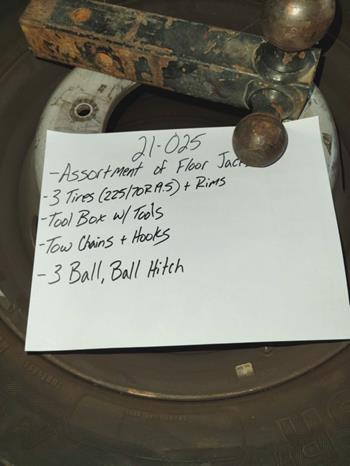 21-025
-Assortment of Floor Jac
-3 Tires (225/70R19.5) + Rims
-Tool Box w/ Tools
-Tow Chains + Hooks
-3 Ball, Ball Hitch